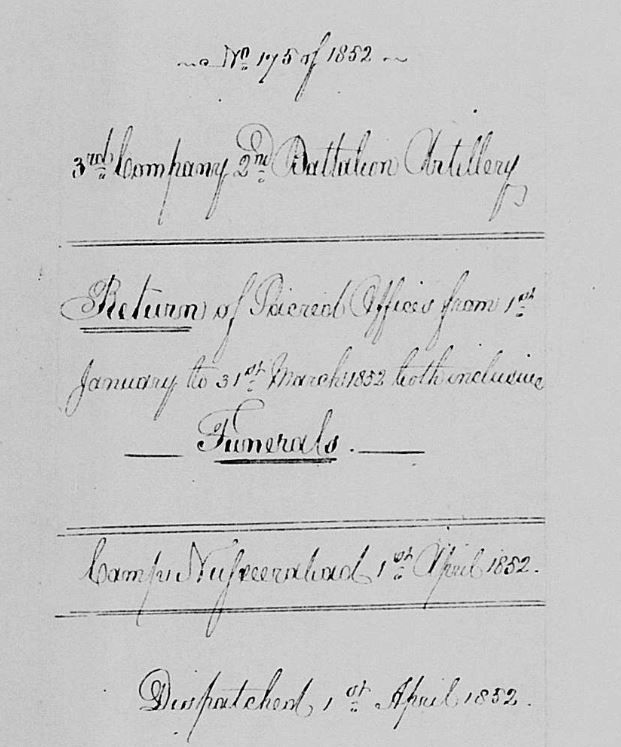 No 175 of 1852
3rd Company 2nd Battalion Artillery
Return of Sacred Offices from 1st
January to 31st March 1852 both inclusive
Funerals.
Camp Nusseerabad 1st April 1852.
Dispatched 1st April 1852.